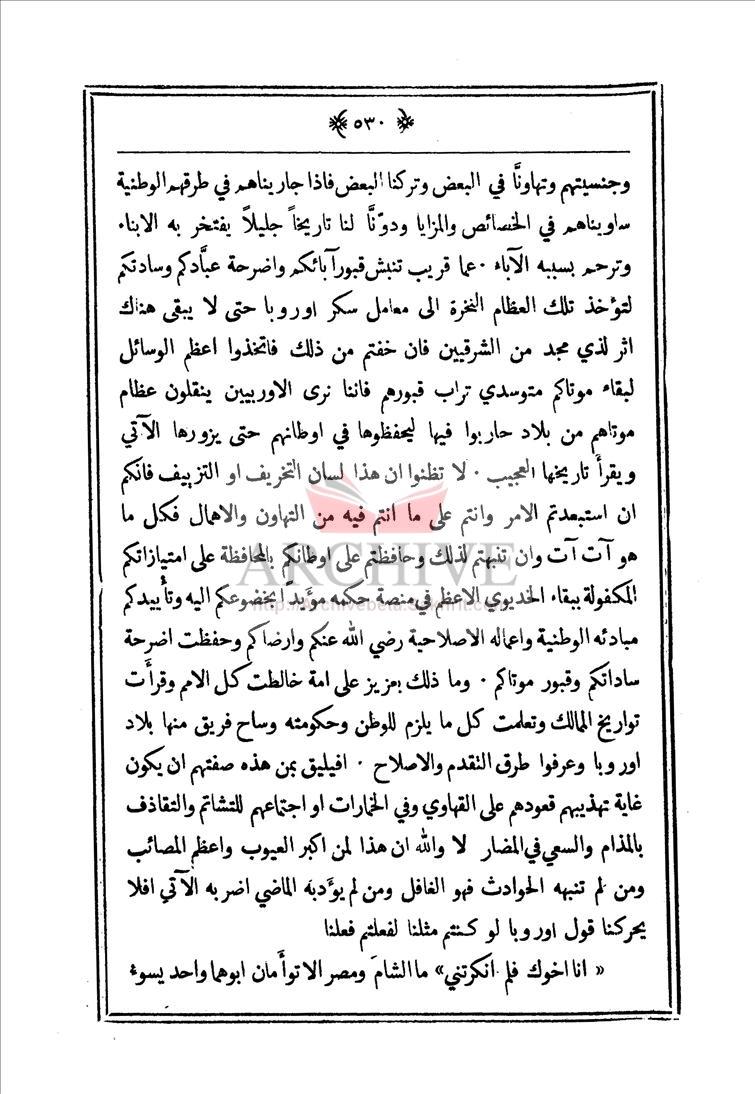 ٥٣٠
وجنسيتهم وتهاونَّا في البعض وتركنا البعض فاذا جاريناهم في طرقهم الوطنية
ساويناهم في الخصائص والمزايا ودوَّنَّا لنا تاريخاً جليلاً يفتخر به الابناء
وترحم بسببه الآباء ٠ عما قريب تنبش قبور آبائكم واضرحة عبَّادكم وسادتكم
لتؤخذ تلك العظام النخرة الى معامل سكر اوروبا حتى لا يبقى هناك
اثر لذي مجد من الشرقيين فان خفتم من ذلك فاتخذوا اعظم الوسائل
لبقاء موتاكم متوسدي تراب قبورهم فاننا نرى الاوربيين ينقلون عظام
موتاهم من بلاد حاربوا فيها ليحفظوها في اوطانهم حتى يزورها الآتي
ويقرأ تاريخها العجيب ٠ لا تظنوا ان هذا لسان التخريف او التزييف فانكم
ان استبعدتم الامر وانتم على ما انتم فيه من التهاون والاهمال فكل ما
هو آت آت وان تنبهتم لذلك وحافظتم على اوطانكم بالمحافظة على امتيازاتكم
المكفولة ببقاء الخديوي الاعظم في منصة حكمه مؤيداً بخضوعكم اليه وتأييدكم
مبادئه الوطنية واعماله الاصلاحية رضي الله عنكم وارضاكم وحفظت اضرحة
ساداتكم وقبور موتاكم ٠ وما ذلك بعزيز على امة خالطت كل الامم وقرأت
تواريخ الممالك وتعلمت كل ما يلزم للوطن وحكومته وساح فريق منها بلاد
اوروبا وعرفوا طرق التقدم والاصلاح ٠ افيليق بمن هذه صفتهم ان يكون
غاية تهذيبهم قعودهم على القهاوي وفي الخمارات او اجتماعهم للتشاتم والتقاذف
بالمذام والسعي في المضار لا والله ان هذا لمن اكبر العيوب واعظم المصائب
ومن لم تنبهه الحوادث فهو الغافل ومن لم يؤدبه الماضي اضر به الآتي افلا
يحركنا قول اوروبا لو كنتم مثلنا لفعلتم فعلنا
« انا اخوك فلم انكرتني» ما الشام ومصر الا توأمان ابوهما واحد يسوء
ARCHIVE